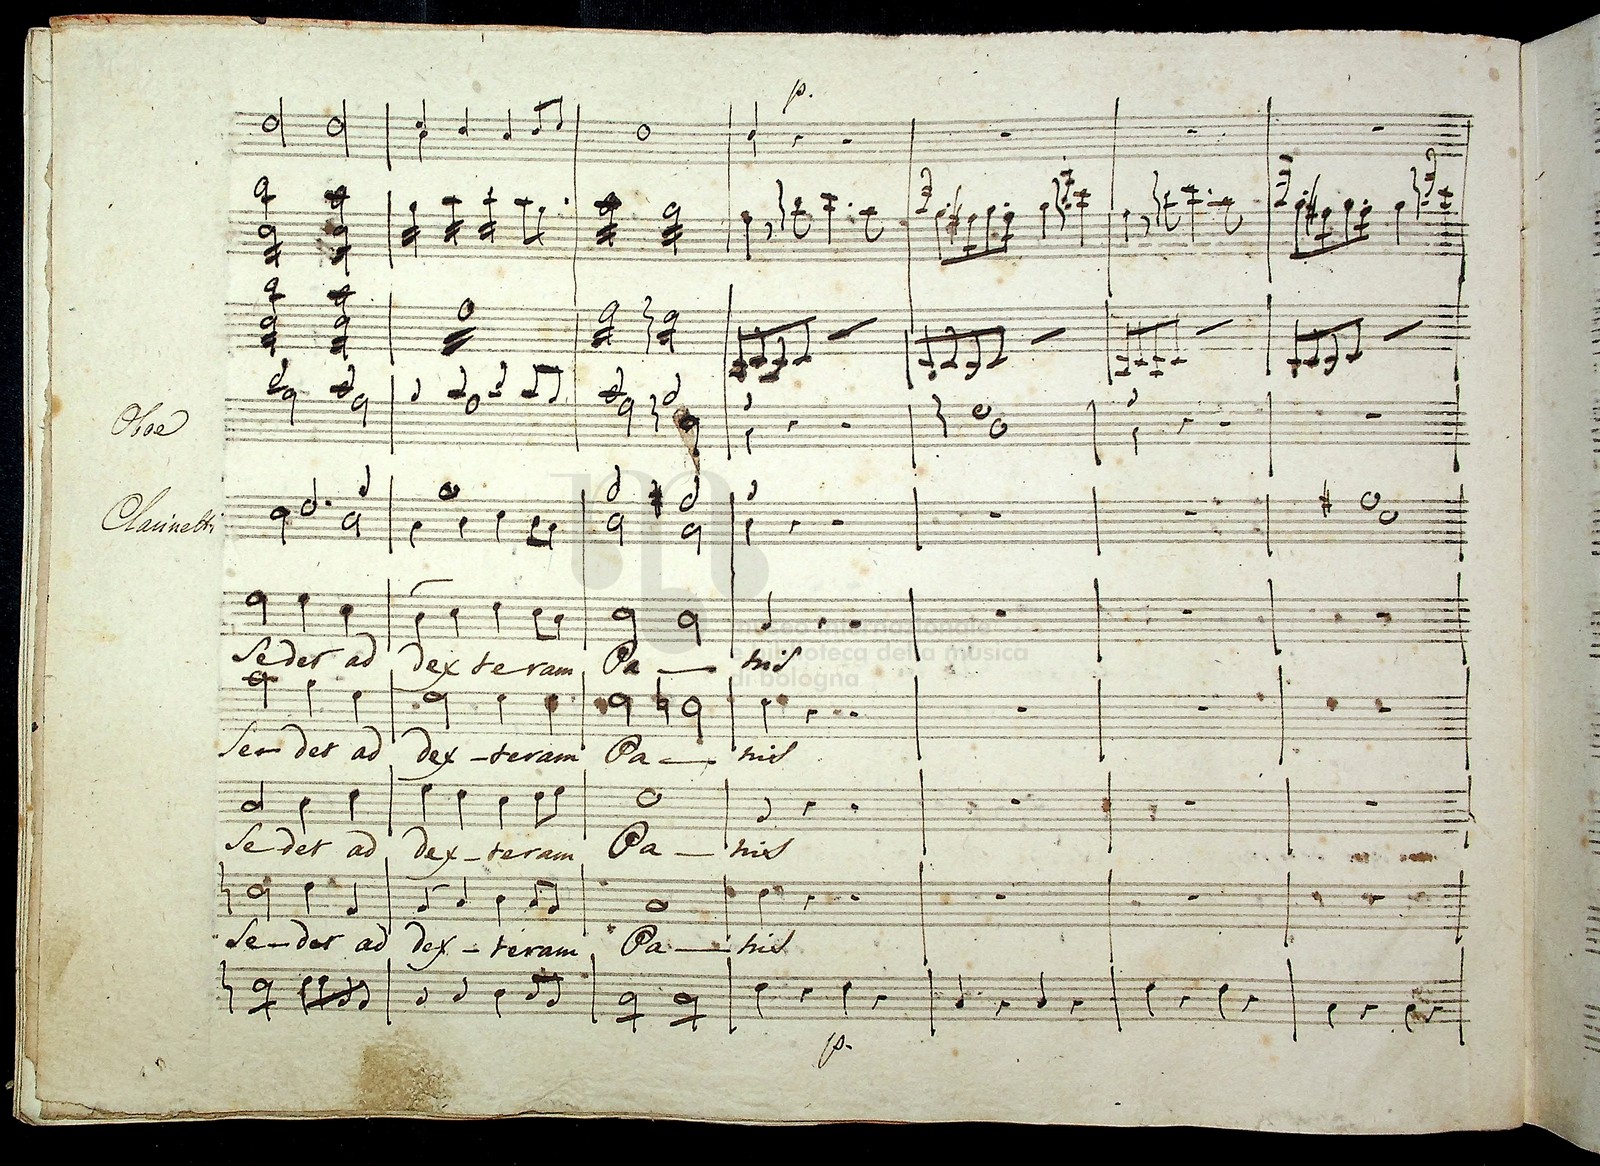 p.
Oboe
Clarinetti
museo internazionale
e biblioteca della musica
di bologna
Se det ad dex te ram Pa — tris
Se — det ad dex — teram Pa — tris
Se det ad dex — teram Pa — tris
Se — det ad dex — teram Pa — tris
p.